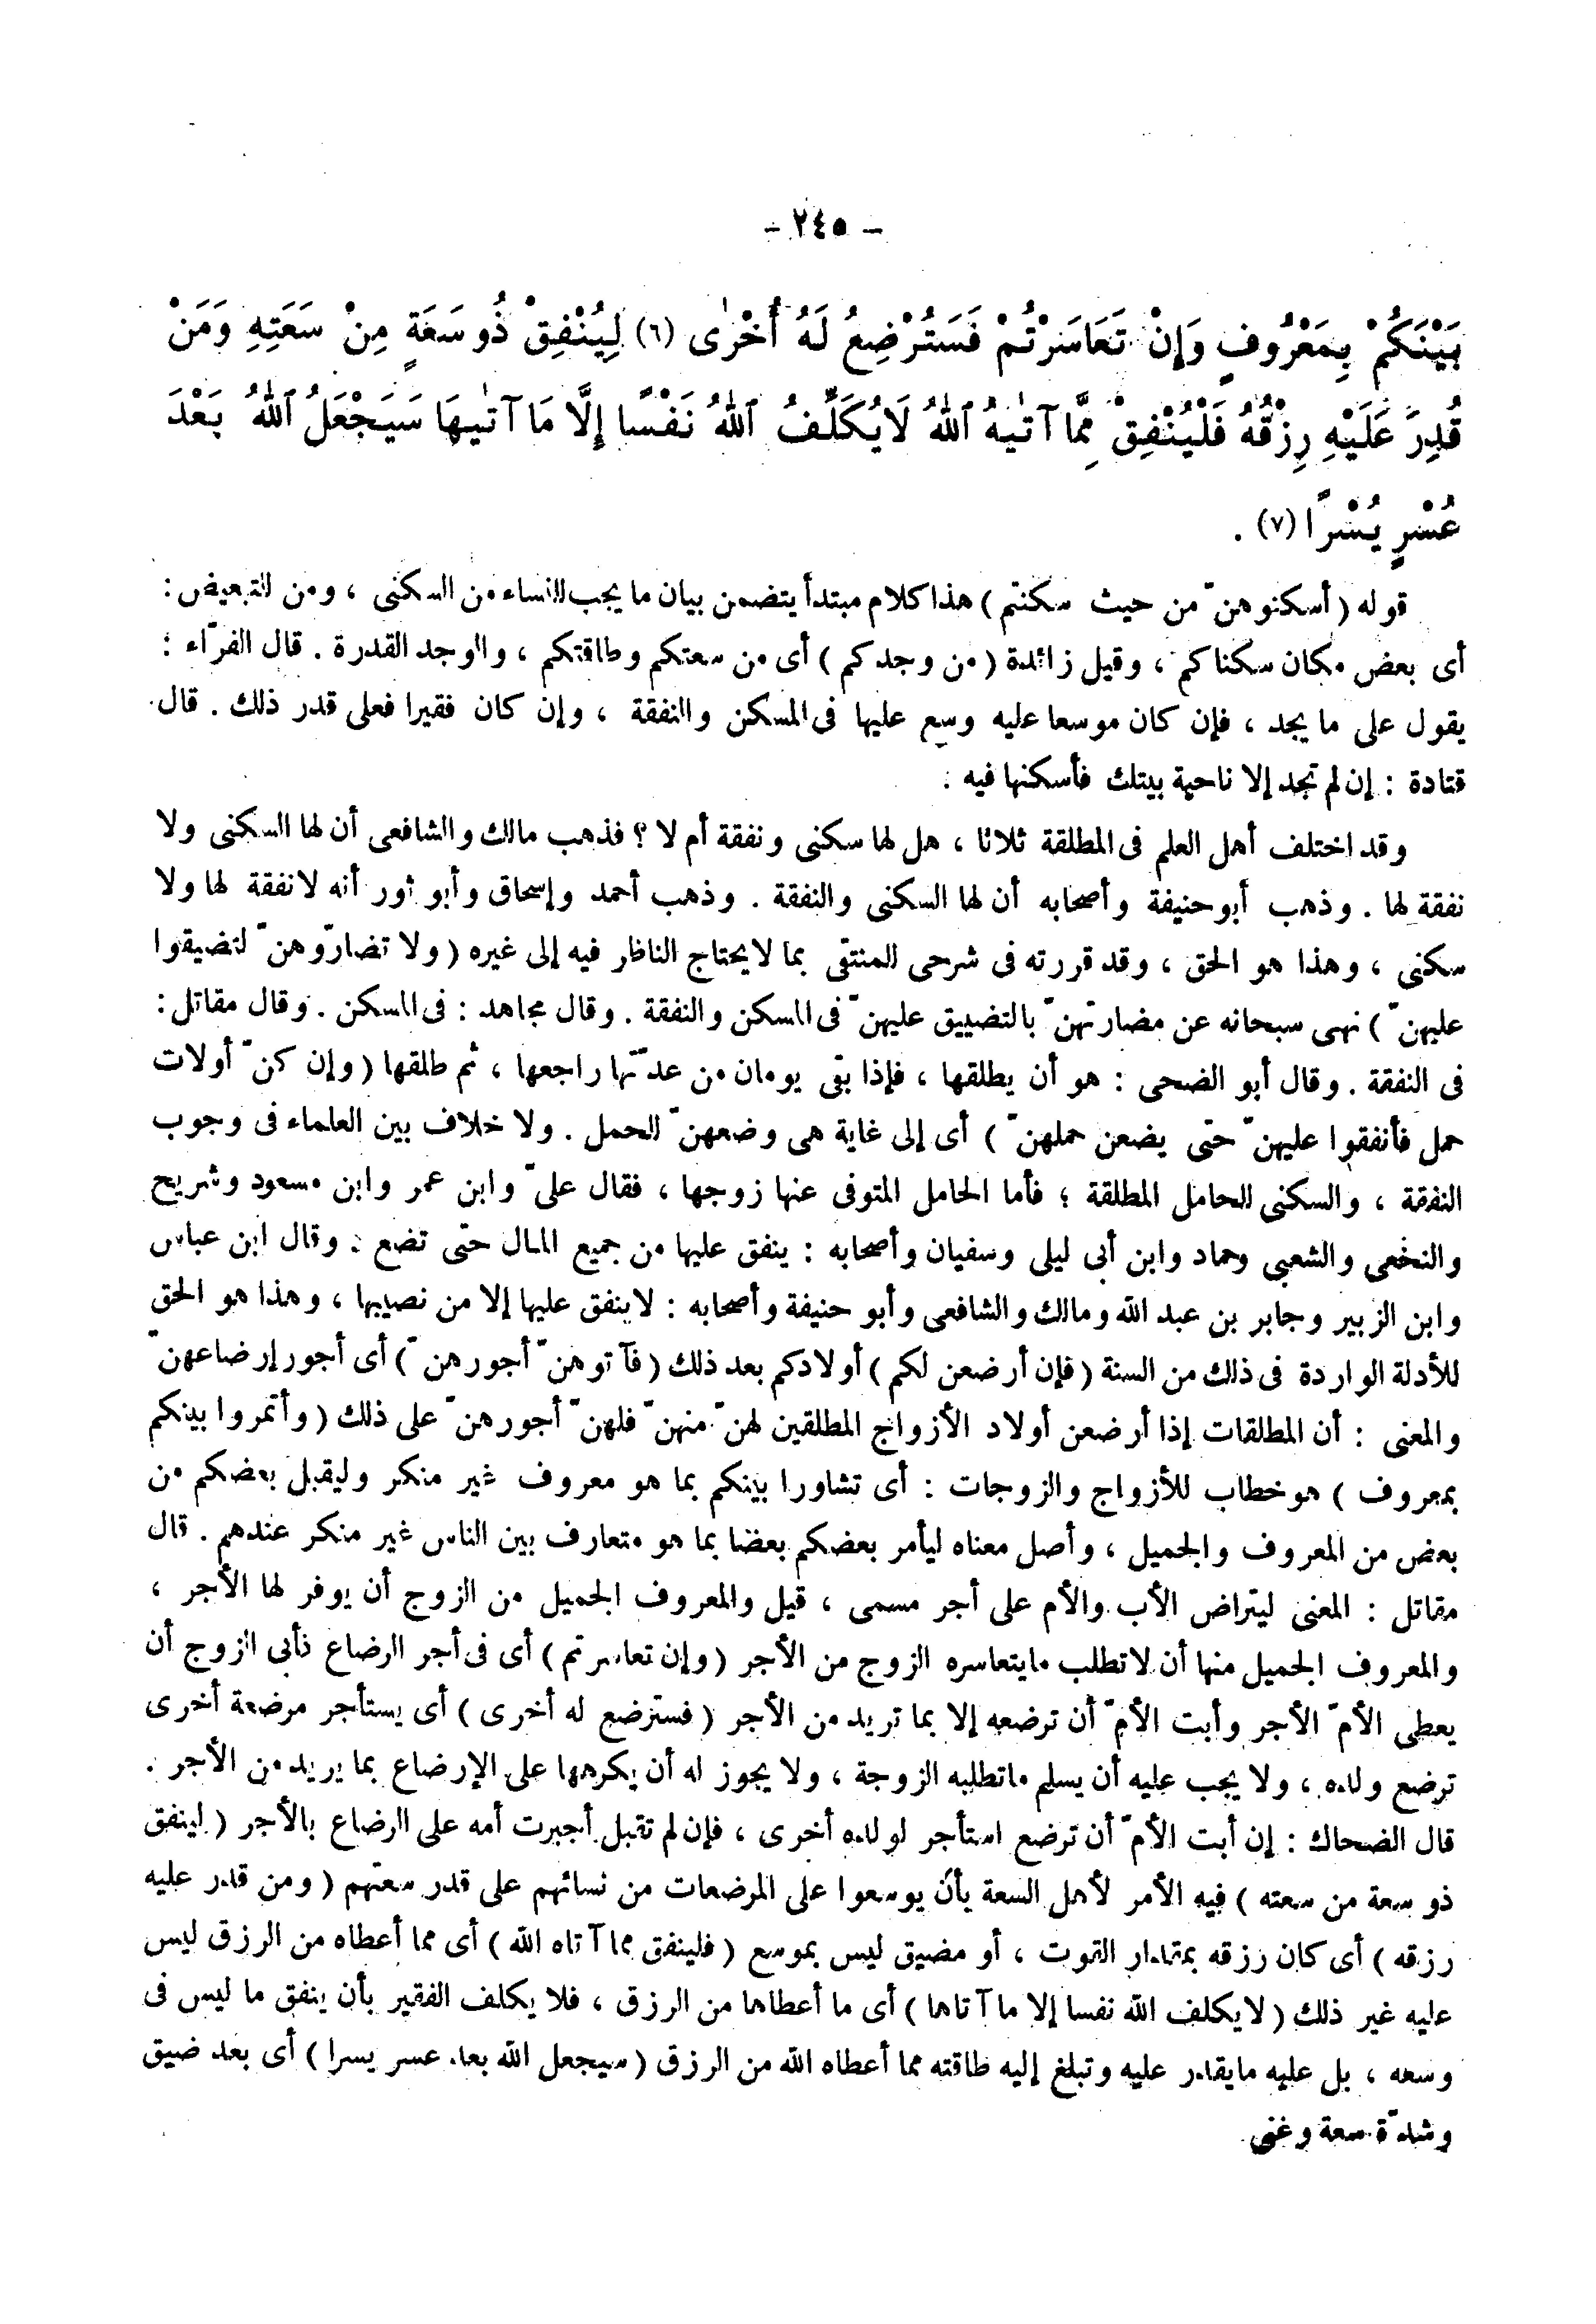 - ٢٤٥ -
بَيْنَكُمْ بِمَعْرُوفٍ وَإِنْ تَعَاسَرْتُمْ فَسَتُرْضِعُ لَهُ أُخْرٰى (٦) لِيُنْفِقْ ذُو سَعَةٍ مِنْ سَعَتِهِ وَمَنْ
قُدِرَ عَلَيْهِ رِزْقُهُ فَلْيُنْفِقْ مِمَّا آتٰيهُ ٱللهُ لَا يُكَلِّفُ ٱللهُ نَفْسًا إِلَّا مَا آتٰيهَا سَيَجْعَلُ ٱللهُ بَعْدَ
عُسْرٍ يُسْرًا (٧) .
قوله ( أسكنوهنّ من حيث سكنتم ) هذا كلام مبتدأ يتضمن بيان ما يجب للنساء من السكنى ، ومن للتبعيض :
أى بعض مكان سكناكم ، وقيل زائدة ( من وجدكم ) أى من سعتكم وطاقتكم ، والوجد القدرة . قال الفرّاء :
يقول على ما يجد ، فإن كان موسعا عليه وسع عليها فى المسكن والنفقة ، وإن كان فقيرا فعلى قدر ذلك . قال
قتادة : إن لم تجد إلا ناحية بيتك فأسكنها فيه .
وقد اختلف أهل العلم فى المطلقة ثلاثا ، هل لها سكنى ونفقة أم لا ؟ فذهب مالك والشافعى أن لها السكنى ولا
نفقة لها . وذهب أبو حنيفة وأصحابه أن لها السكنى والنفقة . وذهب أحمد وإسحاق وأبو ثور أنه لا نفقة لها ولا
سكنى ، وهذا هو الحق ، وقد قررته فى شرحى للمنتقى بما لا يحتاج الناظر فيه إلى غيره ( ولا تضارّوهنّ لتضيقوا
عليهنّ ) نهى سبحانه عن مضارتهنّ بالتضييق عليهنّ فى المسكن والنفقة . وقال مجاهد : فى المسكن . وقال مقاتل :
فى النفقة . وقال أبو الضحى : هو أن يطلقها ، فإذا بقى يومان من عدّتها راجعها ، ثم طلقها ( وإن كنّ أولات
حمل فأنفقوا عليهنّ حتى يضعن حملهنّ ) أى إلى غاية هى وضعهنّ للحمل . ولا خلاف بين العلماء فى وجوب
النفقة ، والسكنى للحامل المطلقة ؛ فأما الحامل المتوفى عنها زوجها ، فقال علىّ وابن عمر وابن مسعود وشريح
والنخعى والشعبى وحماد وابن أبى ليلى وسفيان وأصحابه : ينفق عليها من جميع المال حتى تضع . وقال ابن عباس
وابن الزبير وجابر بن عبد الله ومالك والشافعى وأبو حنيفة وأصحابه : لا ينفق عليها إلا من نصيبها ، وهذا هو الحق
للأدلة الواردة فى ذلك من السنة ( فإن أرضعن لكم ) أولادكم بعد ذلك ( فآتوهنّ أجورهنّ ) أى أجور إرضاعهنّ
والمعنى : أن المطلقات إذا أرضعن أولاد الأزواج المطلقين لهنّ منهنّ فلهنّ أجورهنّ على ذلك ( وأتمروا بينكم
بمعروف ) هو خطاب للأزواج والزوجات : أى تشاورا بينكم بما هو معروف غير منكر وليقبل بعضكم من
بعض من المعروف والجميل ، وأصل معناه ليأمر بعضكم بعضا بما هو متعارف بين الناس غير منكر عندهم . قال
مقاتل : المعنى ليتراض الأب والأم على أجر مسمى ، قيل والمعروف الجميل من الزوج أن يوفر لها الأجر ،
والمعروف الجميل منها أن لا تطلب ما يتعاسره الزوج من الأجر ( وإن تعاسرتم ) أى فى أجر الرضاع فأبى الزوج أن
يعطى الأمّ الأجر وأبت الأمّ أن ترضعه إلا بما تريد من الأجر ( فسترضع له أخرى ) أى يستأجر مرضعة أخرى
ترضع ولده ، ولا يجب عليه أن يسلم ما تطلبه الزوجة ، ولا يجوز له أن يكرهها على الإرضاع بما يريد من الأجر .
قال الضحاك : إن أبت الأمّ أن ترضع استأجر لولده أخرى ، فإن لم تقبل أجبرت أمه على الرضاع بالأجر ( لينفق
ذو سعة من سعته ) فيه الأمر لأهل السعة بأن يوسعوا على المرضعات من نسائهم على قدر سعتهم ( ومن قدر عليه
رزقه ) أى كان رزقه بمقدار القوت ، أو مضيق ليس بموسع ( فلينفق مما آتاه الله ) أى مما أعطاه من الرزق ليس
عليه غير ذلك ( لا يكلف الله نفسا إلا ما آتاها ) أى ما أعطاها من الرزق ، فلا يكلف الفقير بأن ينفق ما ليس فى
وسعه ، بل عليه ما يقدر عليه وتبلغ إليه طاقته مما أعطاه الله من الرزق ( سيجعل الله بعد عسر يسرا ) أى بعد ضيق
وشدّة سعة وغنى